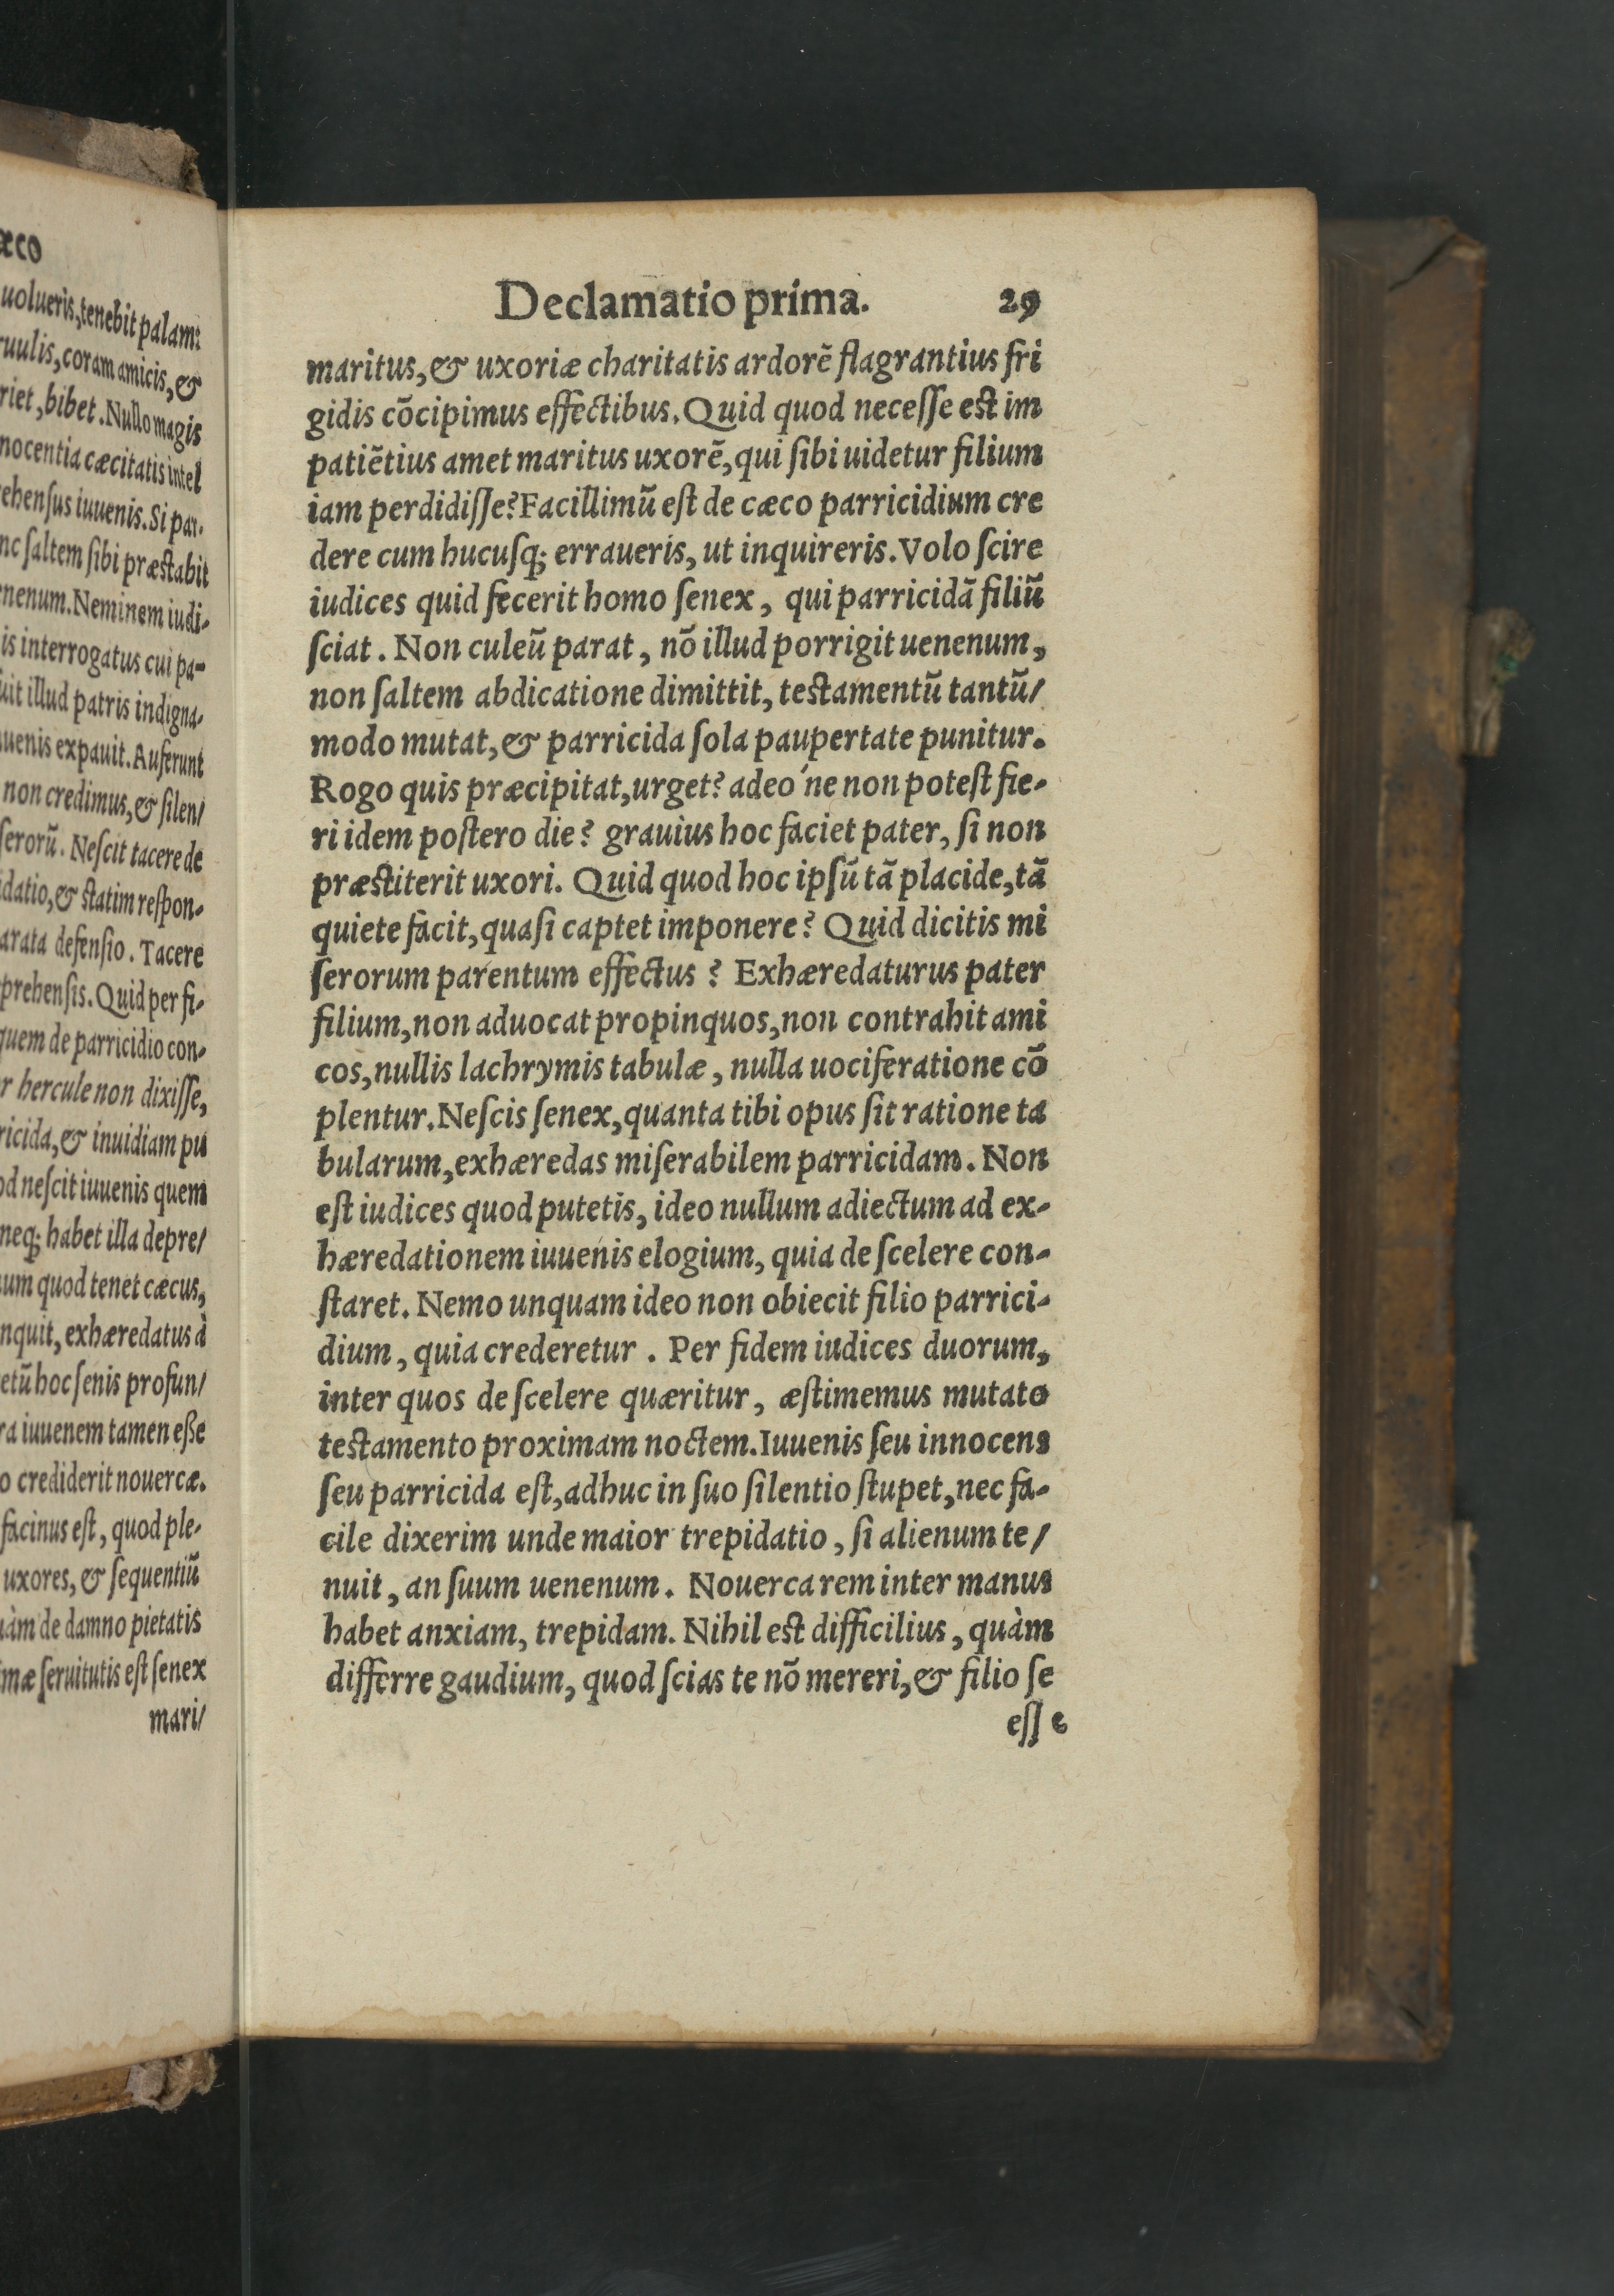 æco
uolueris, tenebit palam:
ruulis, coram amicis, &
riet, bibet. Nullo magis
nocentia cæcitatis intel
ehenſus iuuenis. Si par-
nc ſaltem ſibi præſtabit
enenum. Neminem iudi-
is interrogatus cui pa-
uit illud patris indigna-
uenis expauit. Auferunt
non credimus, & ſilen/
ſerorū. Neſcit tacere de
idatio, & ſtatim reſpon-
arata defenſio. Tacere
prehenſis. Quid per fi-
quem de parricidio con-
r hercule non dixiſſe,
ricida, & inuidiam pu
od neſcit iuuenis quem
neq; habet illa depre/
um quod tenet cæcus,
nquit, exhæredatus à
etū hoc ſenis profun/
ra iuuenem tamen eſſe
o crediderit nouercæ.
facinus eſt, quod ple-
uxores, & ſequentiū
uàm de damno pietatis
mæ ſeruitutis eſt ſenex
mari/
Declamatio prima. 29
maritus, & uxoriæ charitatis ardorē flagrantius fri
gidis cōcipimus effectibus. Quid quod neceſſe eſt im
patiētius amet maritus uxorē, qui ſibi uidetur filium
iam perdidiſſe? Facillimū eſt de cæco parricidium cre
dere cum hucuſq; erraueris, ut inquireris. Volo ſcire
iudices quid fecerit homo ſenex, qui parricidā filiū
ſciat. Non culeū parat, nō illud porrigit uenenum,
non ſaltem abdicatione dimittit, teſtamentū tantū/
modo mutat, & parricida ſola paupertate punitur.
Rogo quis præcipitat, urget? adeo ́ne non poteſt fie-
ri idem poſtero die? grauius hoc faciet pater, ſi non
præſtiterit uxori. Quid quod hoc ipſū tā placide, tā
quiete facit, quaſi captet imponere? Quid dicitis mi
ſerorum parentum effectus? Exhæredaturus pater
filium, non aduocat propinquos, non contrahit ami
cos, nullis lachrymis tabulæ, nulla uociferatione cō
plentur. Neſcis ſenex, quanta tibi opus ſit ratione ta
bularum, exhæredas miſerabilem parricidam. Non
eſt iudices quod putetis, ideo nullum adiectum ad ex-
hæredationem iuuenis elogium, quia de ſcelere con-
ſtaret. Nemo unquam ideo non obiecit filio parrici-
dium, quia crederetur. Per fidem iudices duorum,
inter quos de ſcelere quæritur, æſtimemus mutato
teſtamento proximam noctem. Iuuenis ſeu innocens
ſeu parricida eſt, adhuc in ſuo ſilentio ſtupet, nec fa-
cile dixerim unde maior trepidatio, ſi alienum te/
nuit, an ſuum uenenum. Nouerca rem inter manus
habet anxiam, trepidam. Nihil eſt difficilius, quàm
differre gaudium, quod ſcias te nō mereri, & filio ſe
eſſe